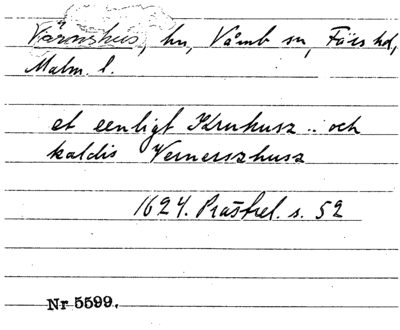 Värnshus, hu, Vämb sn, Färs hd,
Malm. l.
et eenligt Kruhusz .. och
kaldis Vernerszhusz
1624. Prästrel. s. 52
Nr 5599.